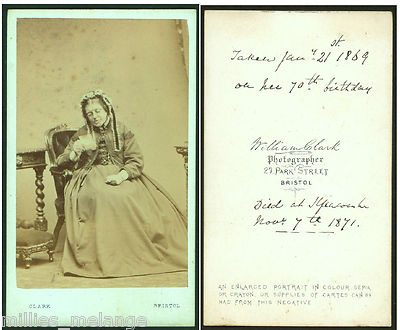 CLARK
BRISTOL
millies_melange
Taken Jany 21st 1869
on her 70th birthday
William Clark
Photographer
29, PARK STREET
BRISTOL
Died at Ilfracombe
Novr 7th 1871.
AN ENLARGED PORTRAIT IN COLOUR, SEPIA
OR CRAYON, OR SUPPLIES OF CARTES CAN BE
HAD FROM THIS NEGATIVE